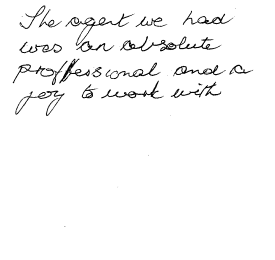 The agent we had
was an absolute
proffessional and a
joy to work with